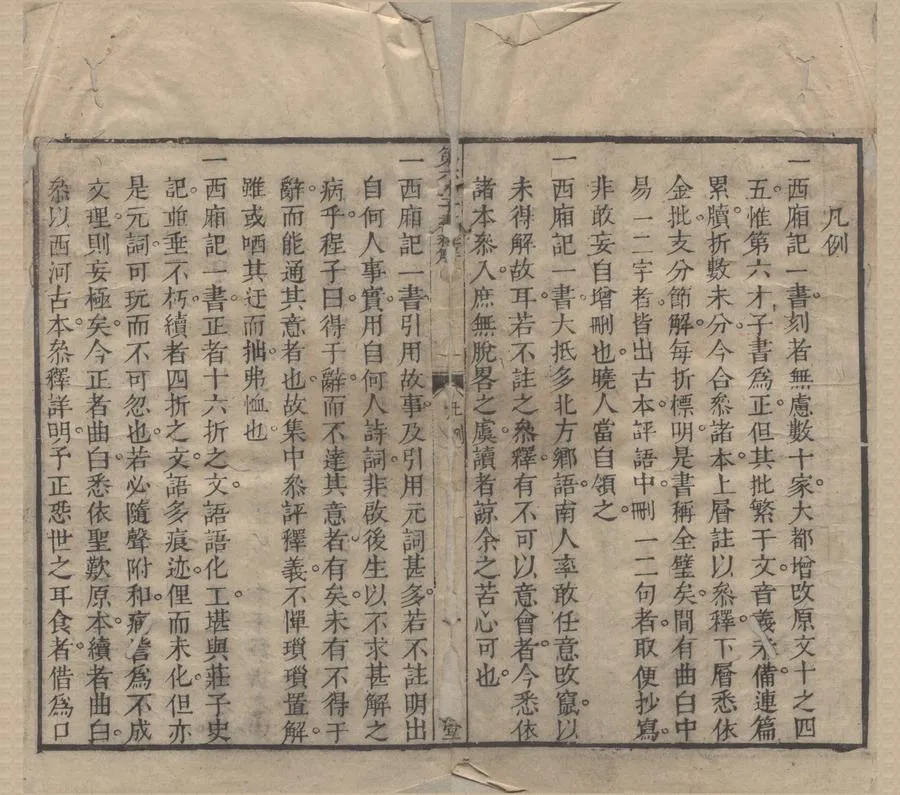 凡例
一西廂記一書刻者無慮數十家大都增改原文十之四
五惟第六才子書爲正但其批繁于文音義未備連篇
累牘折數未分今合叅諸本上層註以叅釋下層悉依
金批支分節解每折標明是書稱全璧矣間有曲白中
易一二字者皆出古本評語中刪一二句者取便抄寫
非敢妄自增刪也曉人當自領之
一西廂記一書大抵多北方鄉語南人率敢任意改竄以
未得解故耳若不註之叅釋有不可以意會者今悉依
諸本叅入庶無脫畧之虞讀者諒余之苦心可也
第六才子書釋解
凡例
一西廂記一書引用故事及引用元詞甚多若不註明出
自何人事實用自何人詩詞非啟後生以不求甚解之
病乎程子曰得于辭而不達其意者有矣未有不得于
辭而能通其意者也故集中叅評釋義不憚瑣瑣置解
雖或哂其迂而拙弗恤也
一西廂記一書正者十六折之文語語化工堪與莊子史
記並垂不朽續者四折之文語多痕迹俚而未化但亦
是元詞可玩而不可忽也若必隨聲附和痛詈爲不成
文理則妄極矣今正者曲白悉依聖歎原本續者曲白
叅以西河古本叅釋詳明予正恐世之耳食者借爲口